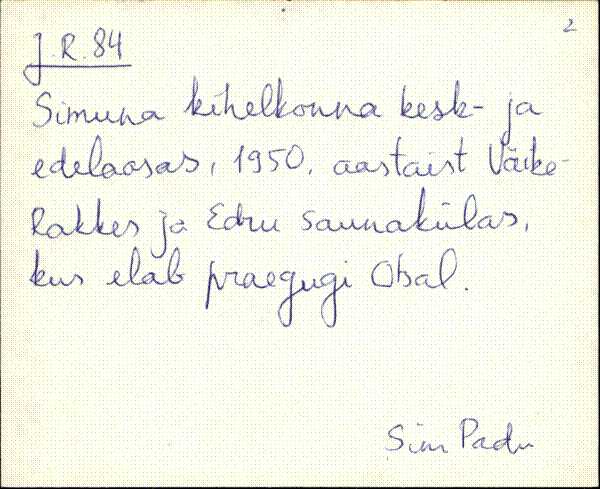 2
J.R. 84
Simuna kihelkonna kesk- ja
edelaosas, 1950. aastaist Väike-
Rakkes ja Edru saunakülas,
kus elab praegugi Otsal.
Sim Padu